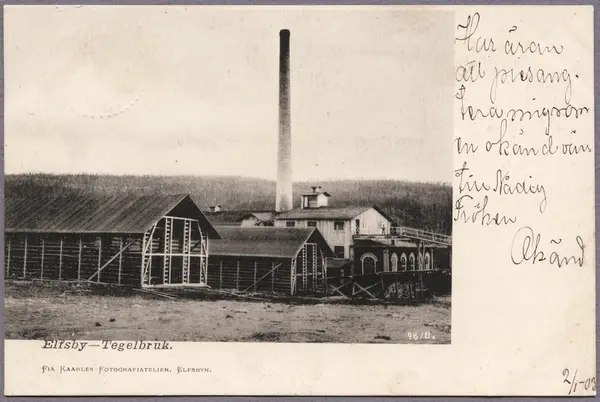 Har äran
att presang-
tera mig som
en okänd vän
till Nådig
Fröken
Okänd
98/0.
Elfsby—Tegelbruk.
Fia Kaahles Fotografiatelier, Elfsbyn.
2/1-03